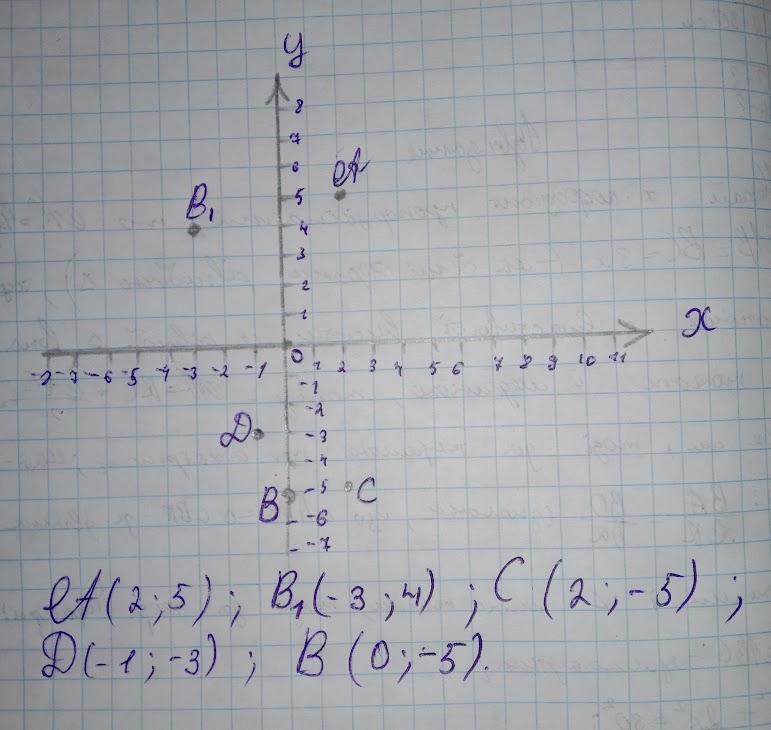 y
8
7
6
A
5
B₁
4
3
2
1
x
0
-8 -7 -6 -5 -4 -3 -2 -1 1 2 3 4 5 6 7 8 9 10 11
-1
-2
D -3
-4
-5 C
B
-6
-7
A(2;5); B₁(-3;4); C(2;-5);
D(-1;-3); B(0;-5).